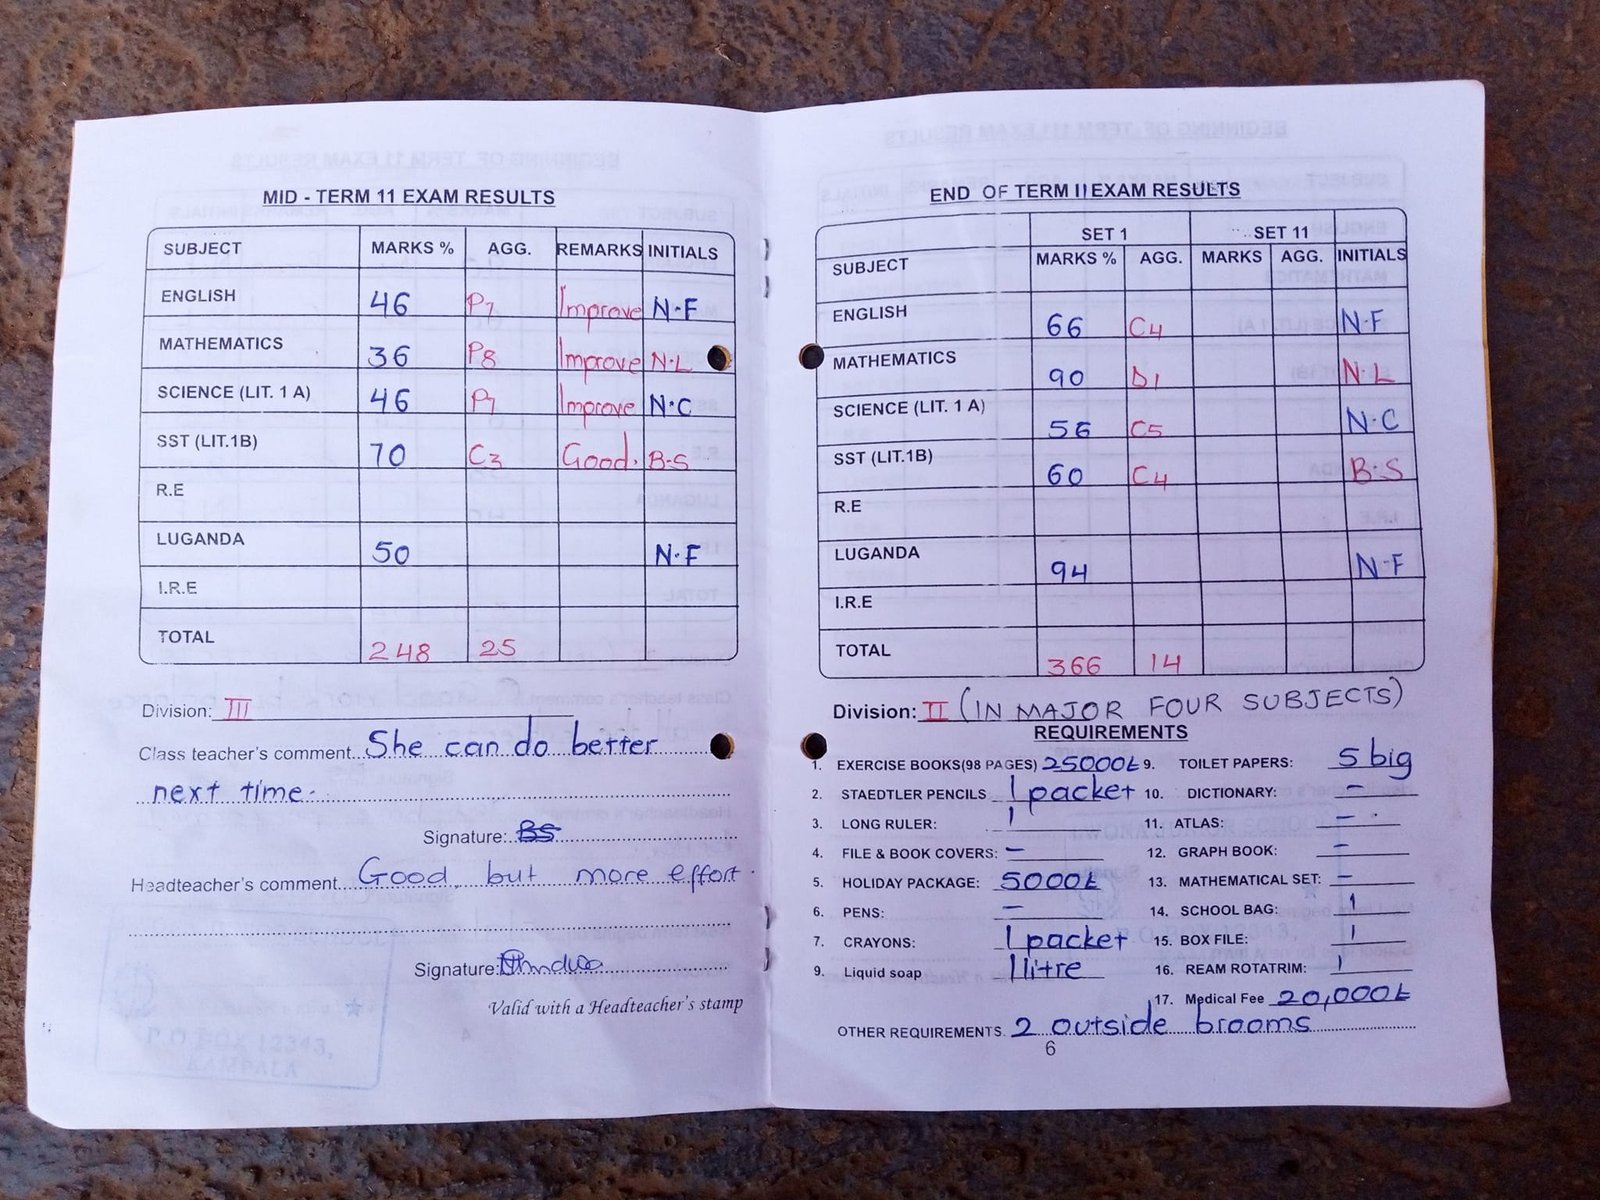 MID - TERM 11 EXAM RESULTS
SUBJECT MARKS % AGG. REMARKS INITIALS
ENGLISH 46 P7 Improve N.F
MATHEMATICS 36 P8 Improve N.L
SCIENCE (LIT. 1 A) 46 P7 Improve N.C
SST (LIT.1B) 70 C3 Good. B.S
R.E
LUGANDA 50 N.F
I.R.E
TOTAL 248 25
Division: III
Class teacher's comment She can do better
next time.
Signature: BS
Headteacher's comment Good but more effort.
Signature:
Valid with a Headteacher's stamp
P.O BOX 12343,
KAMPALA
END OF TERM II EXAM RESULTS
SET 1 SET 11
SUBJECT MARKS % AGG. MARKS AGG. INITIALS
ENGLISH 66 C4 N.F
MATHEMATICS 90 D1 N.L
SCIENCE (LIT. 1 A) 56 C5 N.C
SST (LIT.1B) 60 C4 B.S
R.E
LUGANDA 94 N.F
I.R.E
TOTAL 366 14
Division: II (IN MAJOR FOUR SUBJECTS)
REQUIREMENTS
1. EXERCISE BOOKS(98 PAGES) 25000/= 9. TOILET PAPERS: 5 big
2. STAEDTLER PENCILS 1 packet 10. DICTIONARY: -
3. LONG RULER: 1 11. ATLAS: -
4. FILE & BOOK COVERS: - 12. GRAPH BOOK: -
5. HOLIDAY PACKAGE: 5000/= 13. MATHEMATICAL SET: -
6. PENS: - 14. SCHOOL BAG: 1
7. CRAYONS: 1 packet 15. BOX FILE: 1
9. Liquid soap 1 litre 16. REAM ROTATRIM: 1
17. Medical Fee 20,000/=
OTHER REQUIREMENTS. 2 outside brooms
6